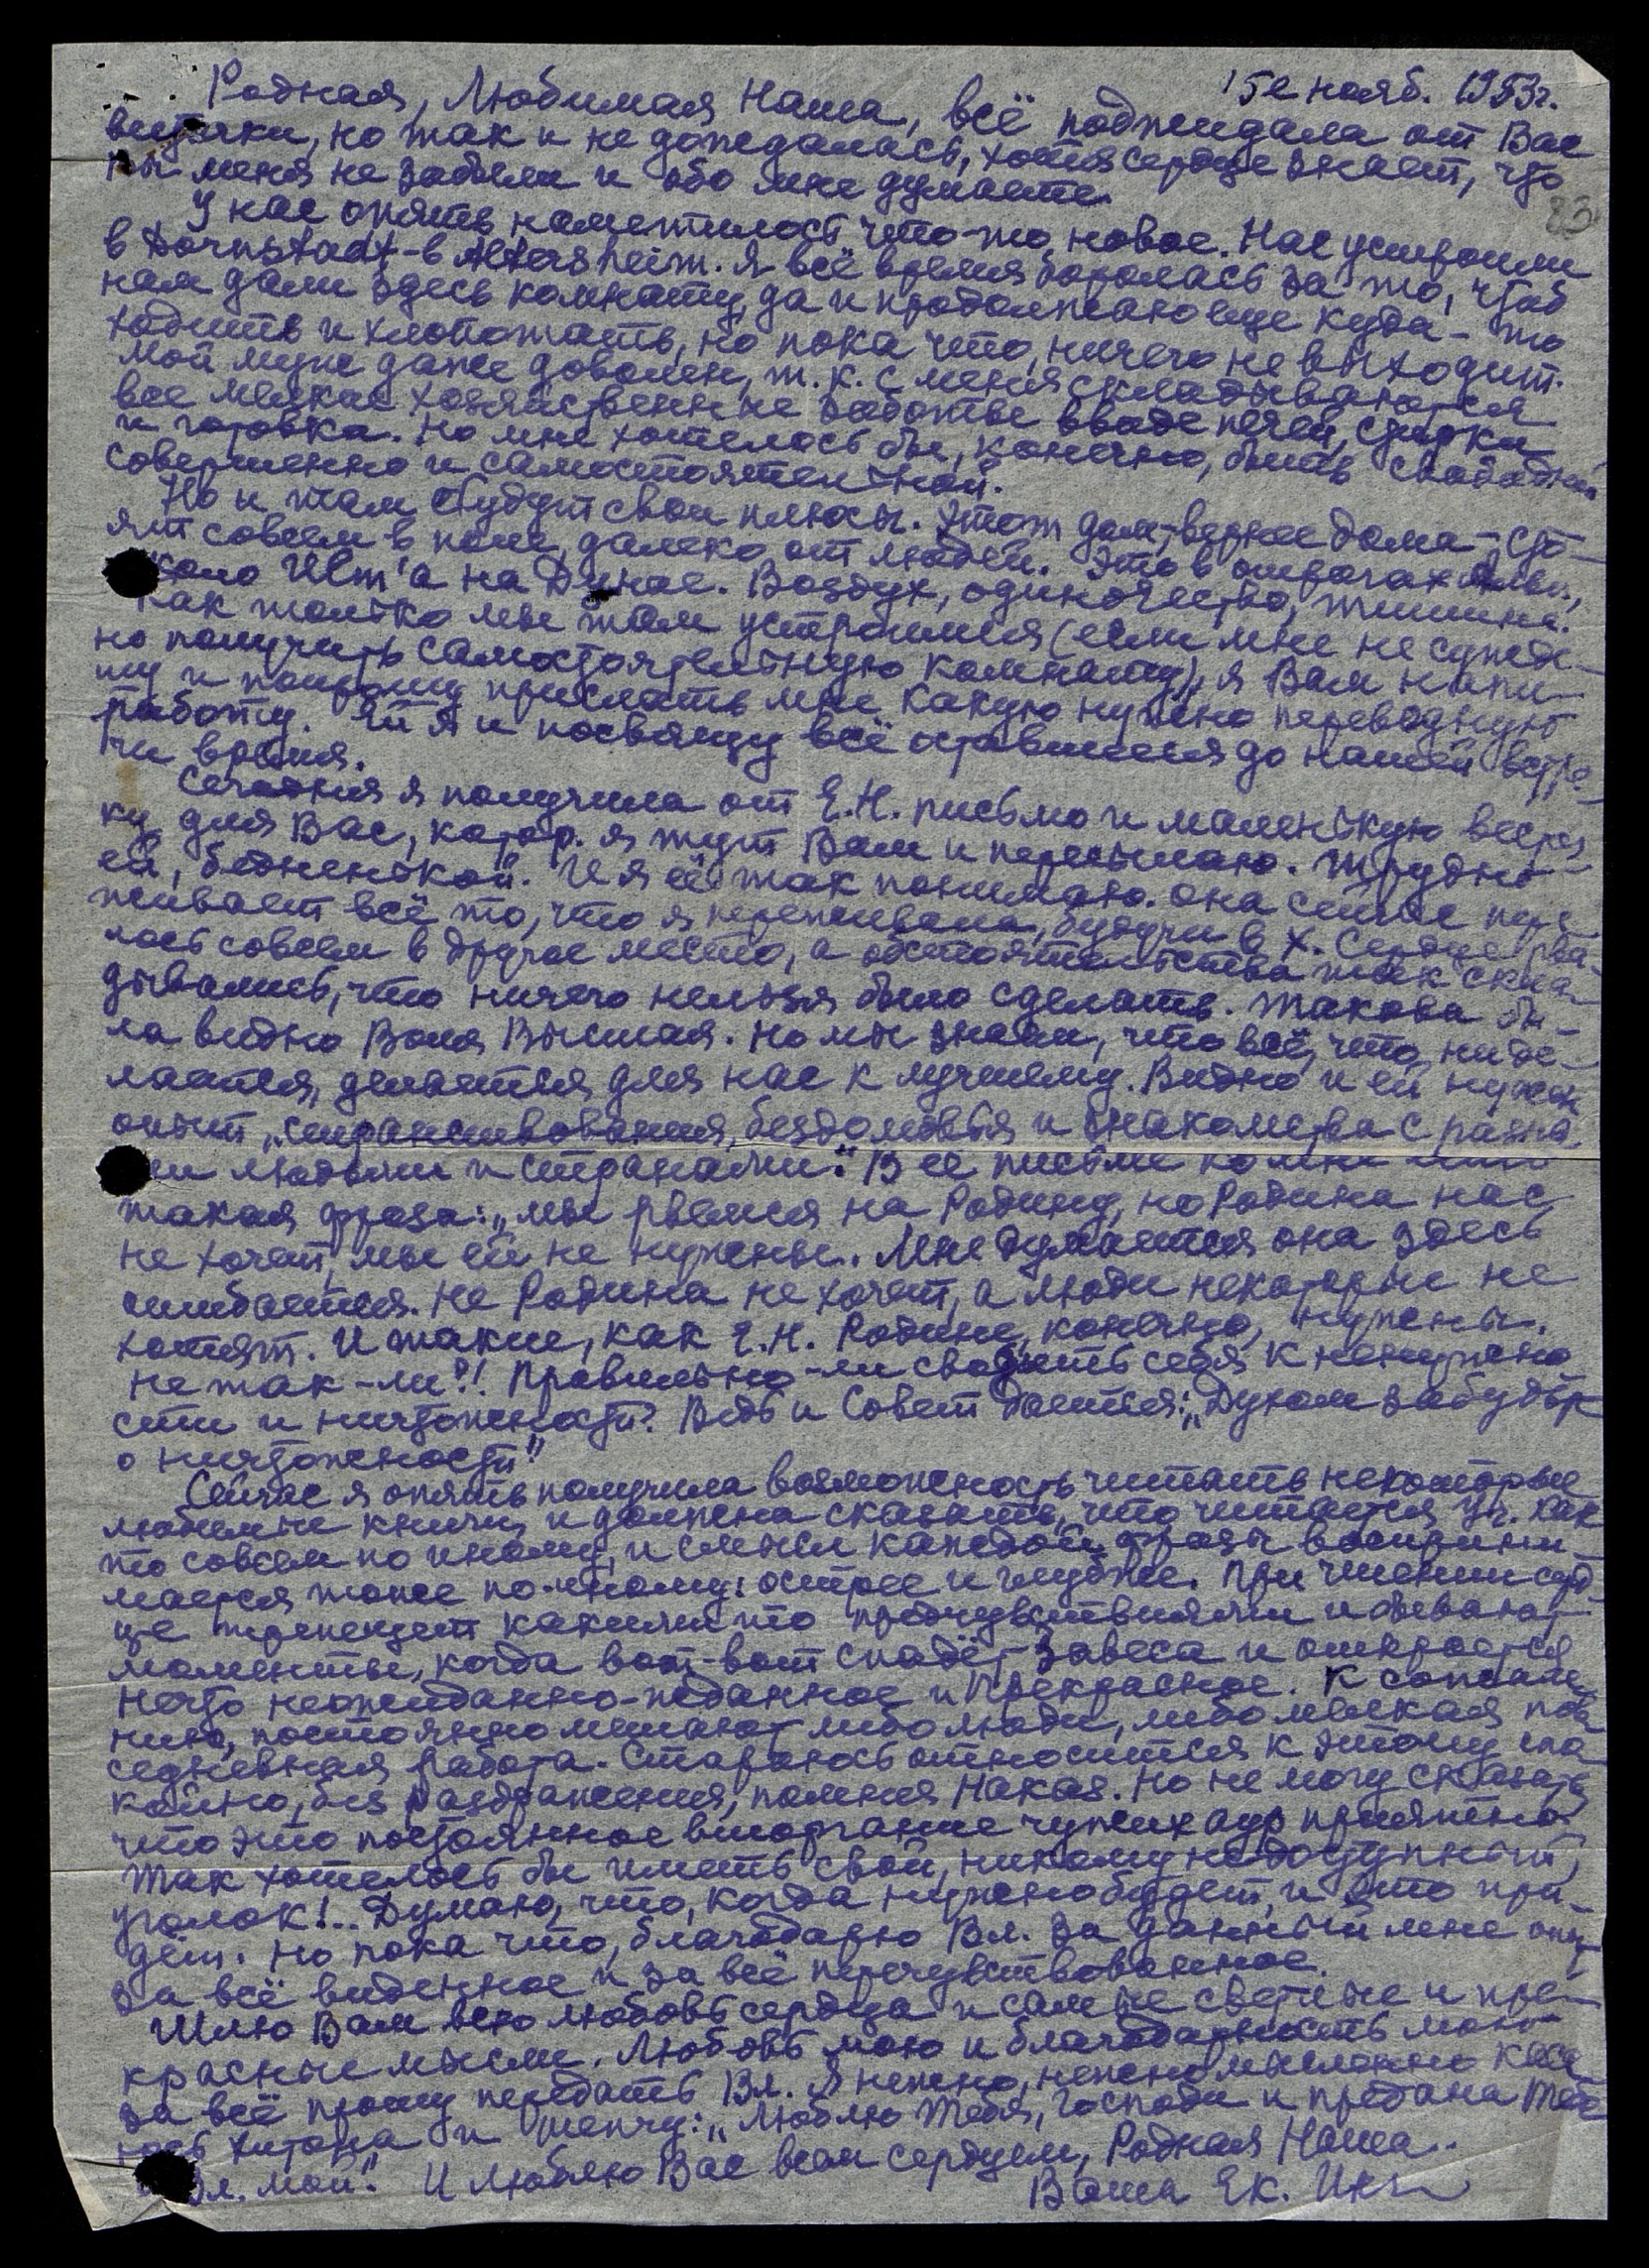 15е нояб. 1953г.
Родная, Любимая Наша, всё поджидала от Вас
весточки, но так и не дождалась, хотя сердце знает, что
Вы меня не забыли и обо мне думаете.
83
У нас опять наметилось что-то новое. Нас устроили
в Dornstadt - в Altersheim. Я всё время боролась за то, чтоб
нам дали здесь комнату, да и продолжаю еще куда-то
ходить и хлопотать, но пока что, ничего не выходит.
Мой муж даже доволен, т.к. с меня складываются
все мелкие хозяйственные заботы в виде печей, стирки
и готовка. Но мне хотелось бы, конечно, быть свободной
совершенно и самостоятельной.
Но и там будут свои плюсы. Этот дом, - вернее дома - сто-
ят совсем в поле, далеко от людей. Это в отрогах Альп,
около Ulm'а на Дунае. Воздух, одиночество, тишина.
Как только мы там устроимся (если мне не сужде-
но получить самостоятельную комнату), я Вам напи-
шу и попрошу прислать мне какую нужно переводную
работу. Ей я и посвящу всё оставшееся до нашей встре-
чи время.
Сегодня я получила от Е.Н. письмо и маленькую весточ-
ку для Вас, котор. я тут Вам и пересылаю. Трудно
ей, бедненькой. И я её так понимаю. Она сейчас пере-
живает всё то, что я переживала, будучи в Х. Сердце рва-
лось совсем в другое место, а обстоятельства так скла-
дывались, что ничего нельзя было сделать. Такова бы-
ла видно Воля Высшая. Но мы знаем, что всё, что ни де-
лается, делается для нас к лучшему. Видно и ей нужен
опыт „странствования, бездомовья и знакомства с разны-
ми людьми и странами." В ее письме ко мне есть
такая фраза: „мы рвемся на Родину, но Родина нас
не хочет, мы ей не нужны". Мне думается она здесь
ошибается. Не Родина не хочет, а люди некоторые не
хотят. И такие, как Е.Н. Родине, конечно, нужны.
Не так-ли?! Правильно-ли сводить себя к ненужно
сти и ничтожности? Ведь и Совет дается: „Духом забудьте
о ничтожности"
Сейчас я опять получила возможность читать некоторые
любимые книги и должна сказать, что читается Уч. как
то совсем по иному, и смысл каждой фразы восприни-
мается тоже по-иному: острее и глубже. При чтении серд-
це трепещет какими-то предчувствиями и бывают
моменты, когда вот-вот спадёт завеса и откроется
нечто неожиданно-жданное и Прекрасное. К сожале-
нию, постоянно мешают либо люди, либо мелкая пов-
седневная работа. Стараюсь относиться к этому спо-
койно, без раздражения, помня Наказ. Но не могу сказать,
что это постоянное вторжение чужих аур приятно.
Так хотелось бы иметь свой, никому недоступный,
уголок!.. Думаю, что, когда нужно будет, и это при-
дёт. Но пока что, благодарю Вл. за данный мне опыт
за всё виденное и за всё перечувствованное.
Шлю Вам всю любовь сердца и самые светлые и пре-
красные мысли. Любовь мою и благодарность мою
за всё прошу передать Вл. Я нежно, нежно мысленно каса-
юсь Хитона и шепчу: „Люблю Тебя, Господи и предана Тебе
Вл. мой." И люблю Вас всем сердцем, Родная Наша.
Ваша Ек.